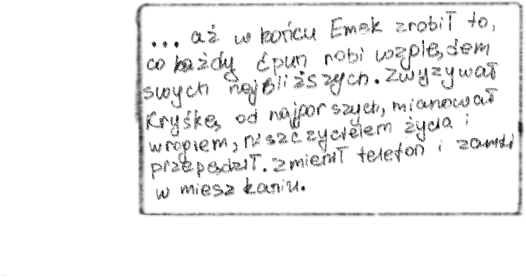 ... aż w końcu Emek zrobił to,
co każdy ćpun robi względem
swych najbliższych. Zwyzywał
Kryśkę, od najgorszych, mianował
wrogiem, niszczycielem życia i
przepędził. Zmienił telefon i zamki
w mieszkaniu.